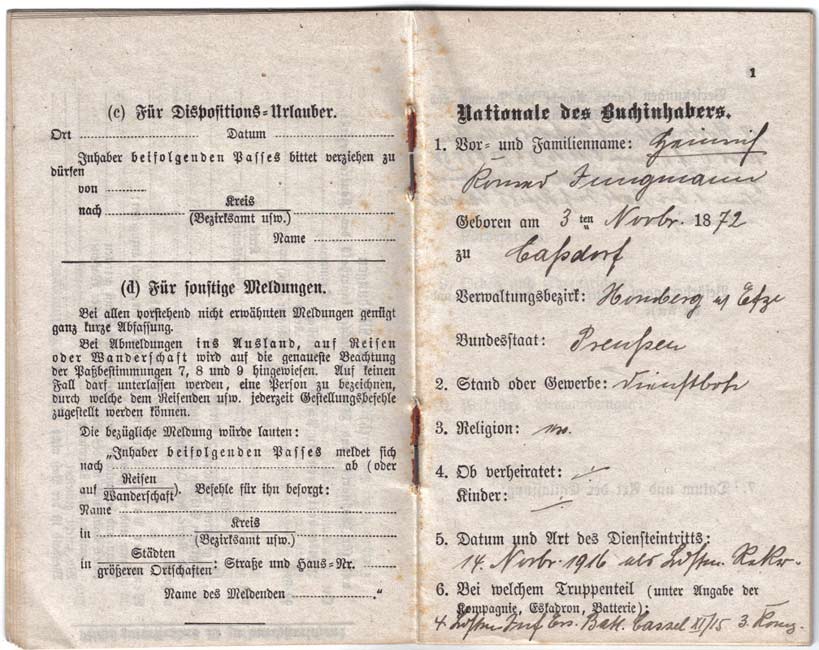 (c) Für Dispositions-Urlauber.
Ort ........ Datum ........
Inhaber beifolgenden Passes bittet verziehen zu
dürfen
von ........
nach ........ Kreis ........
(Bezirksamt usw.)
Name ........
(d) Für sonstige Meldungen.
Bei allen vorstehend nicht erwähnten Meldungen genügt
ganz kurze Abfassung.
Bei Abmeldungen ins Ausland, auf Reisen
oder Wanderschaft wird auf die genaueste Beachtung
der Paßbestimmungen 7, 8 und 9 hingewiesen. Auf keinen
Fall darf unterlassen werden, eine Person zu bezeichnen,
durch welche dem Reisenden usw. jederzeit Gestellungsbefehle
zugestellt werden können.
Die bezügliche Meldung würde lauten:
„Inhaber beifolgenden Passes meldet sich
nach ........ ab (oder
auf Reisen
Wanderschaft). Befehle für ihn besorgt:
Name ........
in ........ Kreis ........
(Bezirksamt usw.)
in Städten
größeren Ortschaften: Straße und Haus-Nr. ........
Name des Meldenden ........"
1
Nationale des Buchinhabers.
1. Vor- und Familienname: Heinrich
Konrad Jungmann
Geboren am 3ten Novbr. 1872
zu Caßdorf
Verwaltungsbezirk: Homberg a/ Efze
Bundesstaat: Preußen
2. Stand oder Gewerbe: Dienstbote
3. Religion: ev.
4. Ob verheiratet: ·/·
Kinder: ·/·
5. Datum und Art des Diensteintritts:
14. Novbr. 1916 als Ldstm. Rekr.
6. Bei welchem Truppenteil (unter Angabe der
Kompagnie, Eskadron, Batterie):
4. Ldstm Inf Ers. Batl. Cassel XI/15 3. Komp.